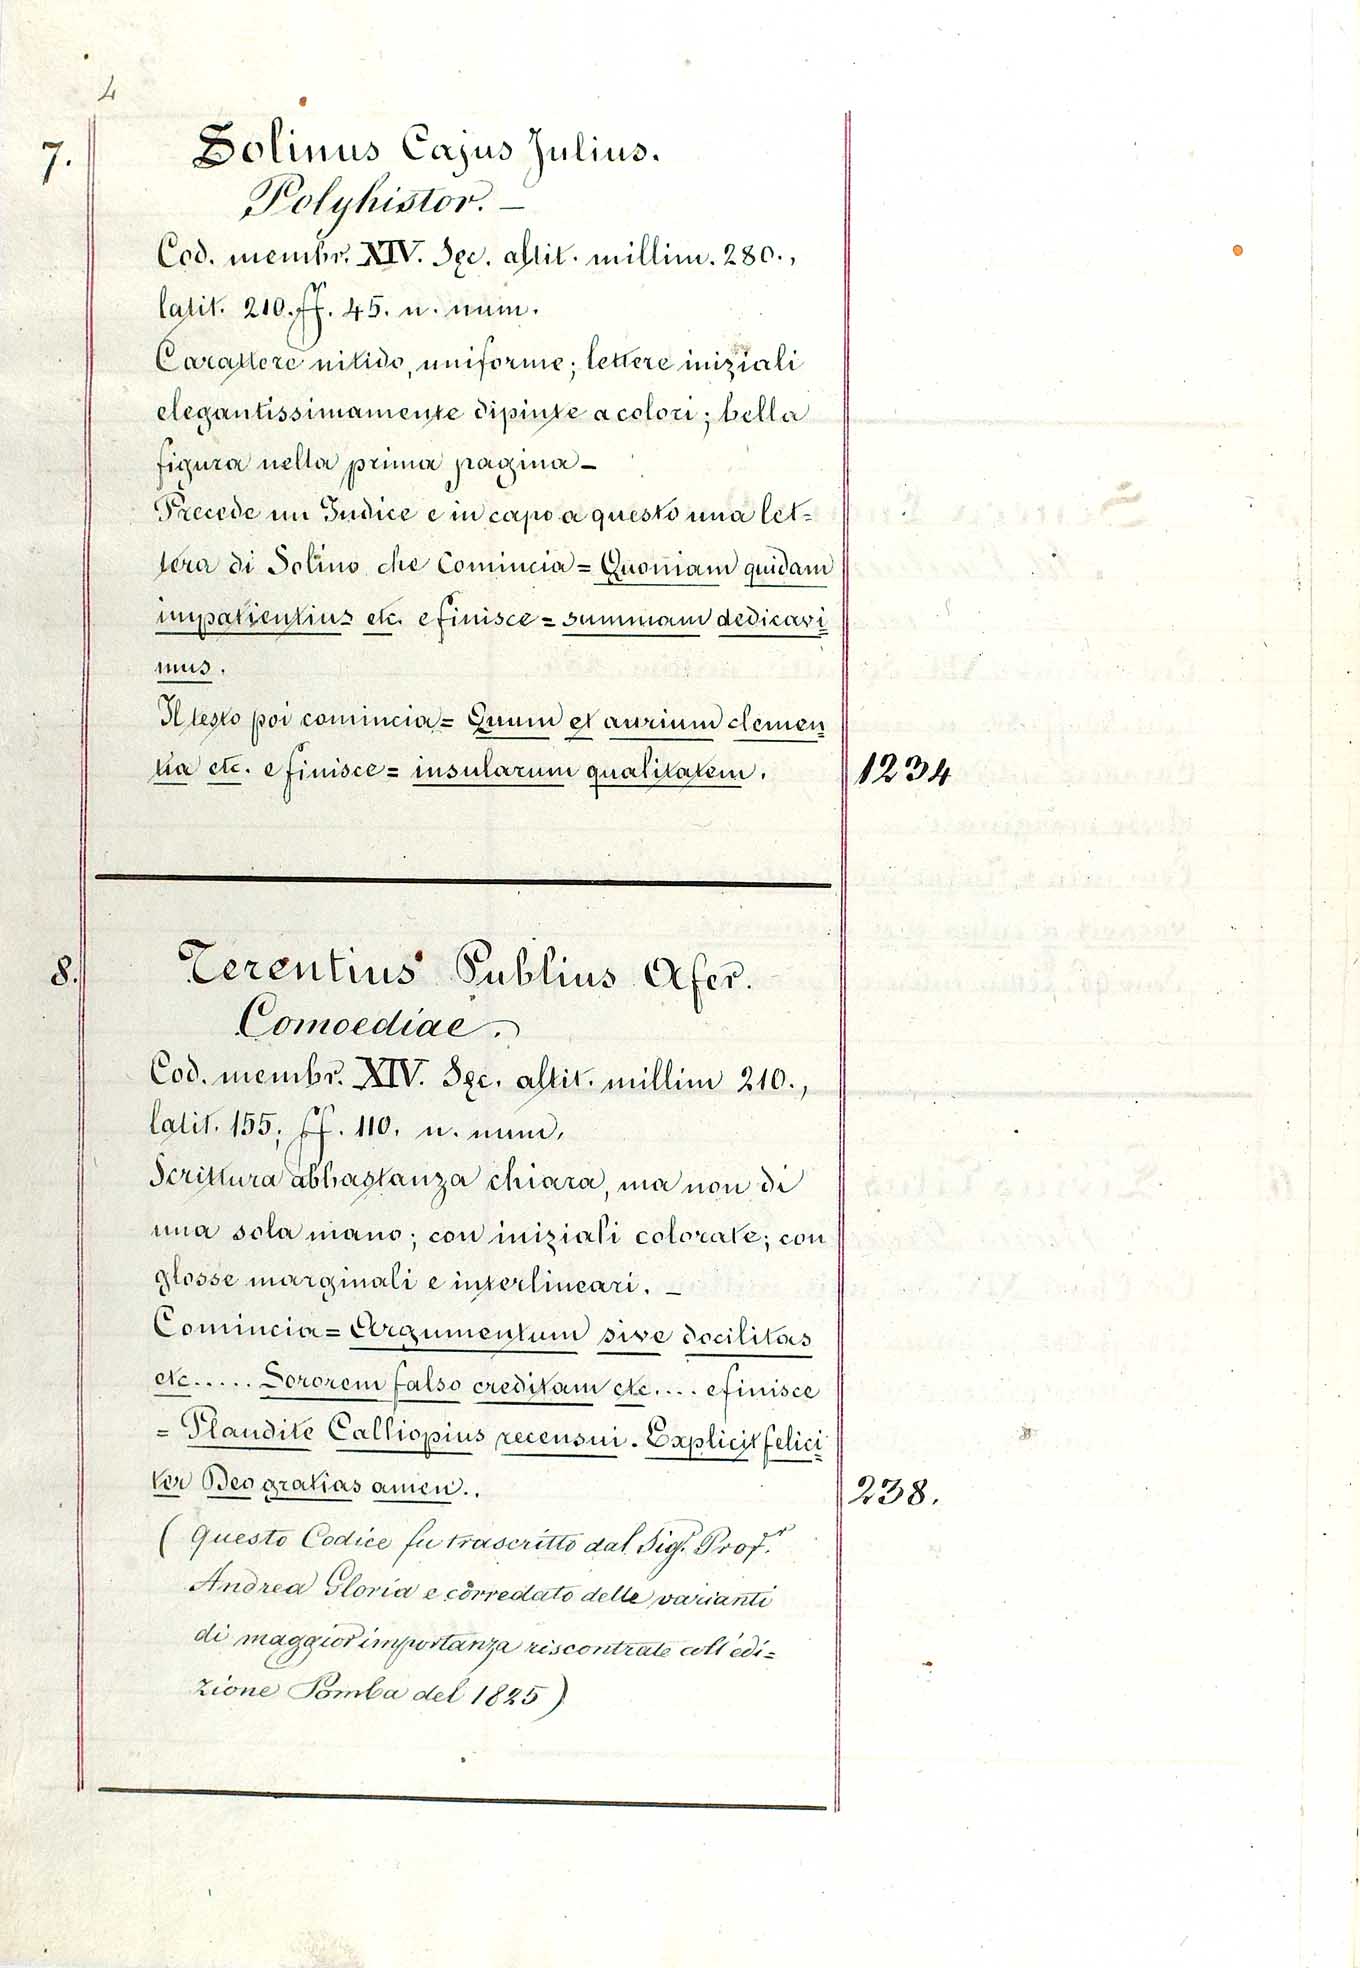 4
7. Solinus Cajus Julius.
Polyhistor. —
Cod. membr. XIV. Sec. altit. millim. 280.,
latit. 210. ff. 45. n. num.
Carattere nitido, uniforme; lettere iniziali
elegantissimamente dipinte a colori; bella
figura nella prima pagina —
Precede un Indice e in capo a questo una let=
tera di Solino che comincia = Quoniam quidam
impatientius etc. e finisce = summam dedicavi=
mus.
Il testo poi comincia = Quum et aurium clemen=
tia etc. e finisce = insularum qualitatem. 1234
8. Terentius Publius Afer.
Comoediae.
Cod. membr. XIV. Sec. altit. millim 210.,
latit. 155; ff. 110. n. num.
Scrittura abbastanza chiara, ma non di
una sola mano; con iniziali colorate; con
glosse marginali e interlineari. —
Comincia = Argumentum sive docilitas
etc..... Sororem falso creditam etc.... e finisce
= Plaudite Calliopius recensui. Explicit felici=
ter Deo gratias amen.. 238.
(Questo Codice fu trascritto dal Sigr. Profr.
Andrea Gloria e corredato delle varianti
di maggior importanza riscontrate coll'edi=
zione Pomba del 1825)